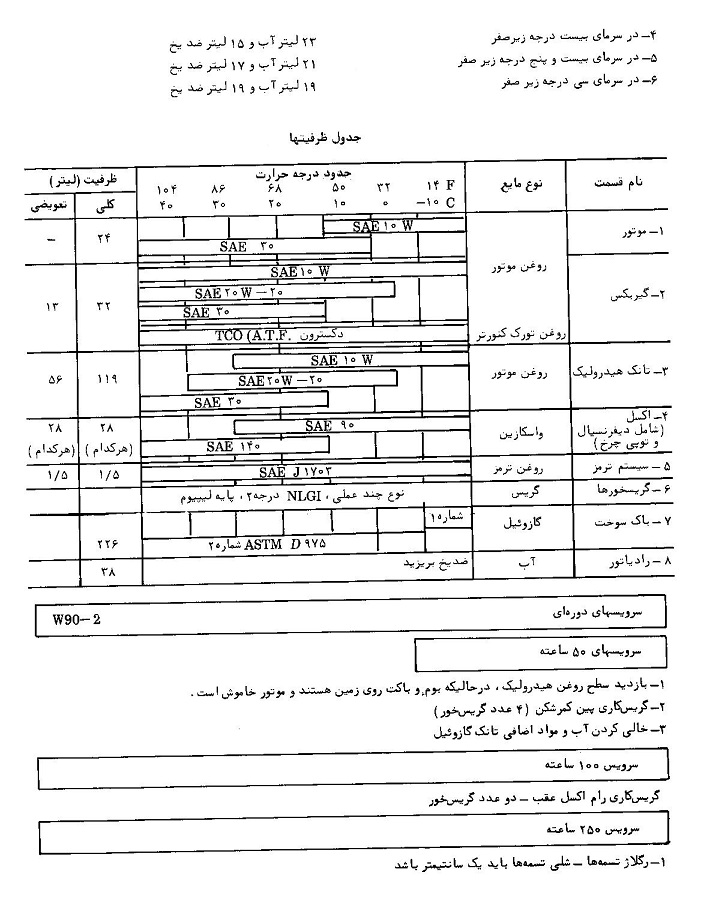 ۴ــ در سرمای بیست درجه زیرصفر ۲۳ لیتر آب و ۱۵ لیتر ضد یخ
۵ــ در سرمای بیست و پنج درجه زیر صفر ۲۱ لیتر آب و ۱۷ لیتر ضد یخ
۶ــ در سرمای سی درجه زیر صفر ۱۹ لیتر آب و ۱۹ لیتر ضد یخ
جدول ظرفیتها
نام قسمت نوع مایع حدود درجه حرارت ظرفیت (لیتر)
۱۴ F ۳۲ ۵۰ ۶۸ ۸۶ ۱۰۴
−۱۰ C ۰ ۱۰ ۲۰ ۳۰ ۴۰ کلی تعویضی
۱ــ موتور روغن موتور SAE ۱۰ W ۲۴ –
SAE ۳۰
۲ــ گیربکس SAE ۱۰ W ۳۲ ۱۳
SAE ۲۰ W – ۲۰
SAE ۳۰
روغن تورک کنورتر دکسترون TCO (A.T.F.
۳ــ تانک هیدرولیک روغن موتور SAE ۱۰ W ۱۱۹ ۵۶
SAE ۲۰W – ۲۰
SAE ۳۰
۴ــ اکسل (شامل دیفرنسیال و توپی چرخ) واسکازین SAE ۹۰ ۲۸ (هرکدام) ۲۸ (هرکدام)
SAE ۱۴۰
۵ ــ سیستم ترمز روغن ترمز SAE J ۱۷۰۳ ۱/۵ ۱/۵
۶ ــ گریسخورها گریس نوع چند عملی، NLGI درجه۲، پایه لیپیوم
۷ ــ باک سوخت گازوئیل شماره۱
ASTM D ۹۷۵ شماره۲ ۲۲۶
۸ ــ رادیاتور آب ضدیخ بریزید ۳۸
سرویسهای دوره‌ای W90–2
سرویسهای ۵۰ ساعته
۱ــ بازدید سطح روغن هیدرولیک، درحالیکه بوم و باکت روی زمین هستند و موتور خاموش است.
۲ــ گریس‌کاری پین کمرشکن (۴ عدد گریس‌خور)
۳ــ خالی کردن آب و مواد اضافی تانک گازوئیل
سرویس ۱۰۰ ساعته
گریس‌کاری رام اکسل عقب ــ دو عدد گریس‌خور
سرویس ۲۵۰ ساعته
۱ــ رگلاژ تسمه‌ها ــ شلی تسمه‌ها باید یک سانتیمتر باشد